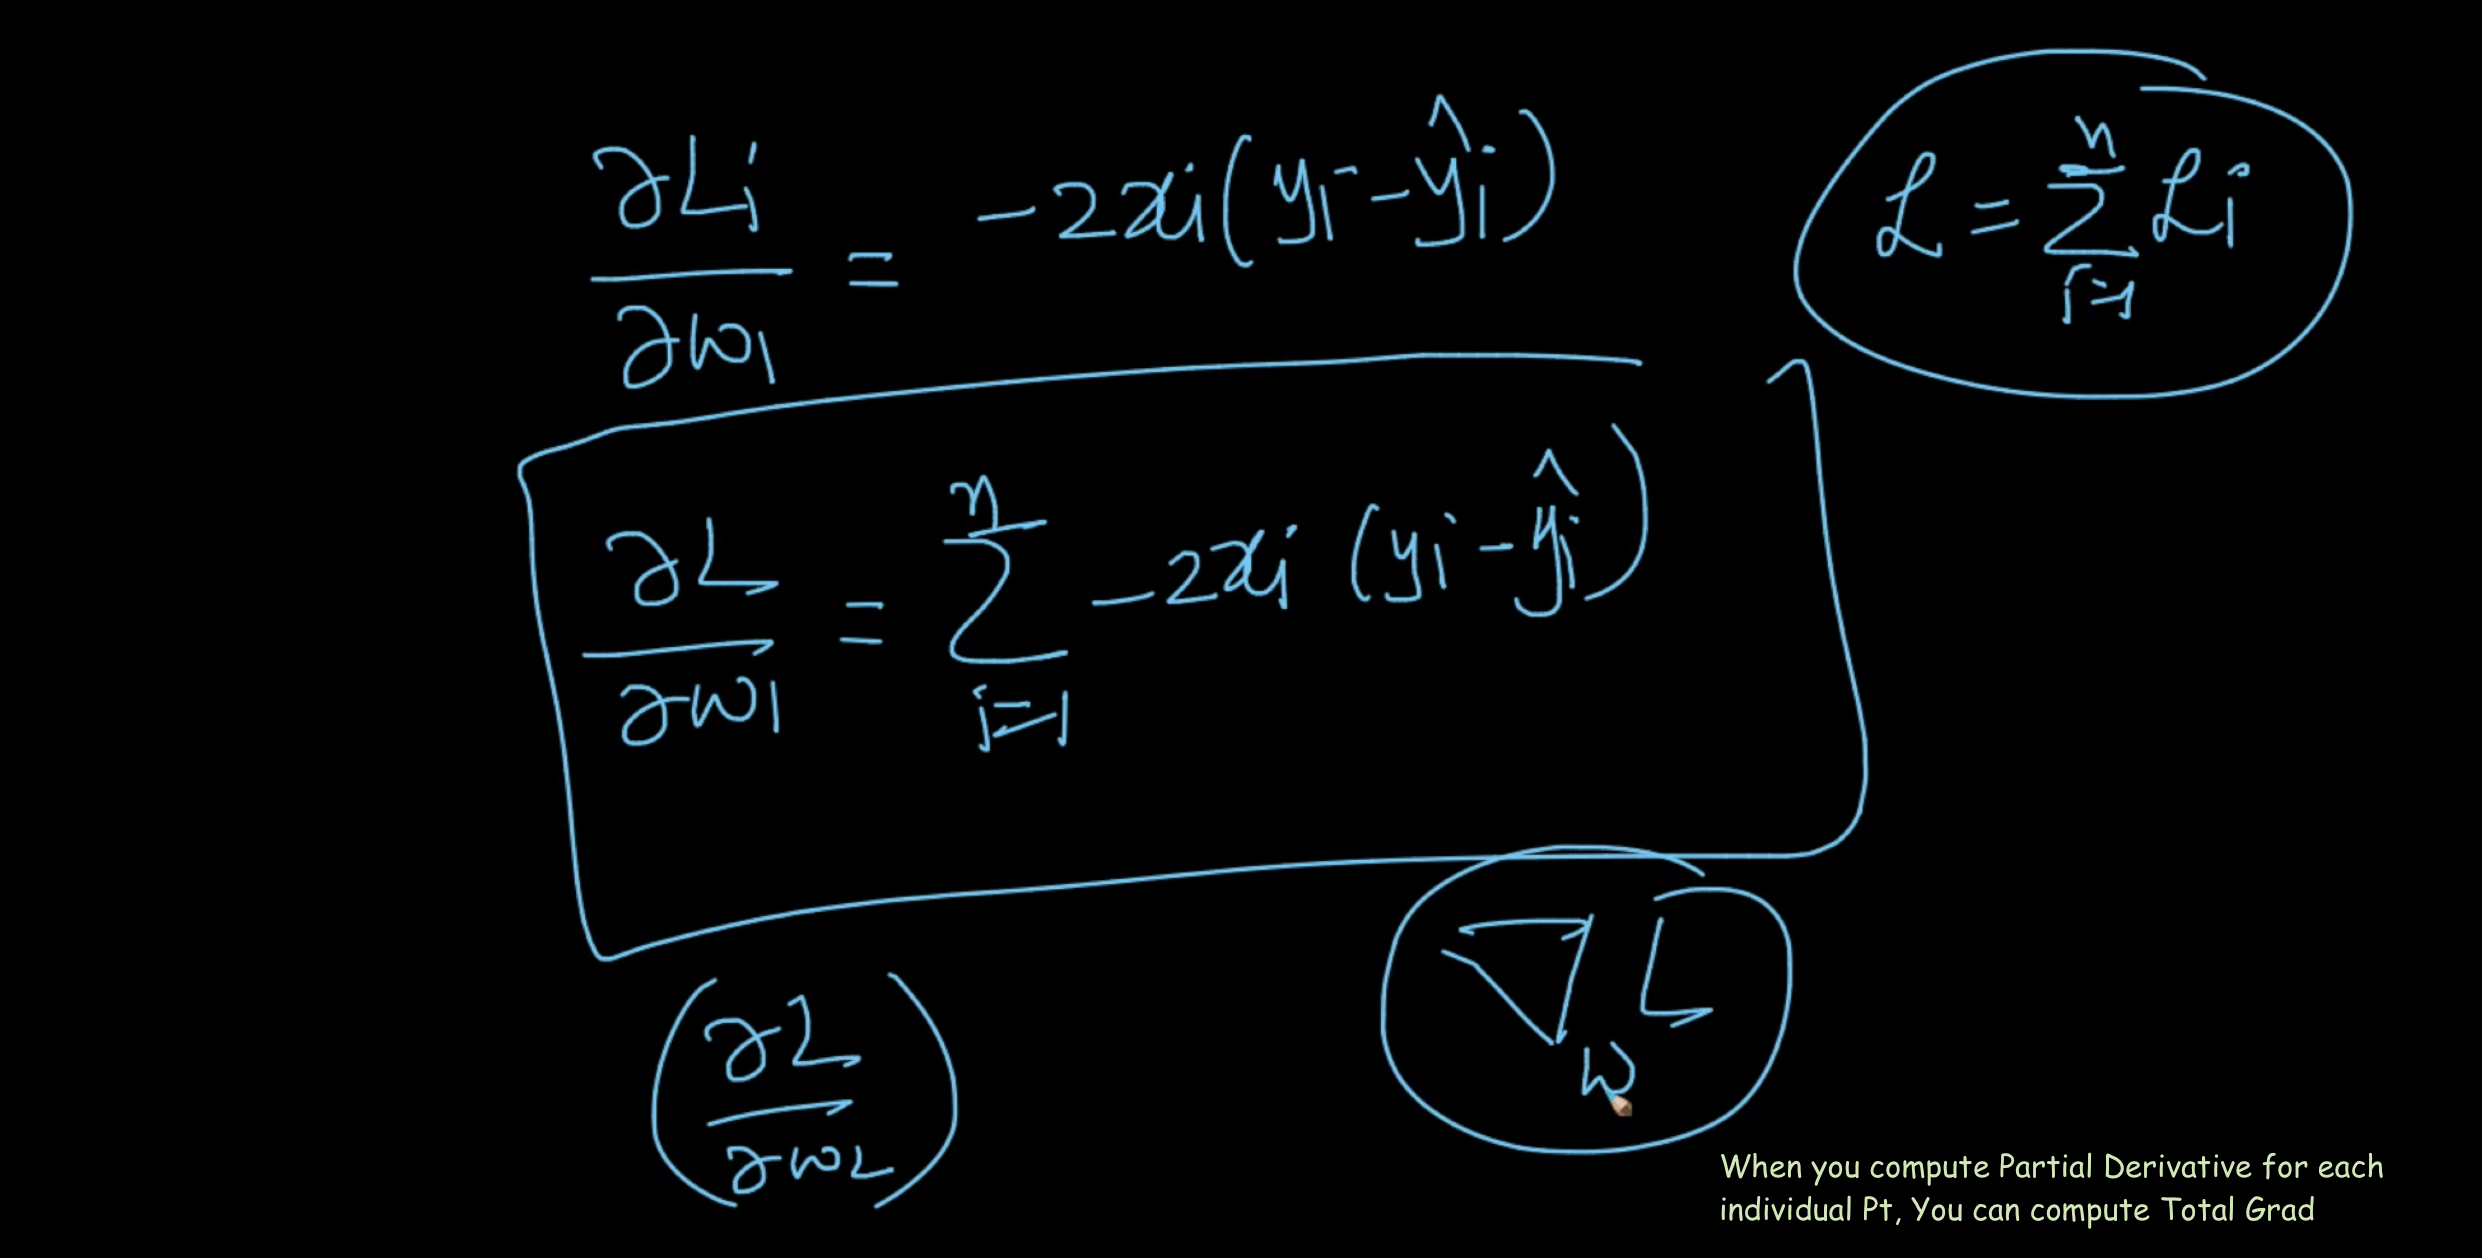 ∂Li/∂w1 = -2xi(yi - ŷi)
L = Σ_{i=1}^{n} Li
∂L/∂w1 = Σ_{i=1}^{n} -2xi (yi - ŷi)
(∂L/∂w2)
∇_w L
When you compute Partial Derivative for each
individual Pt, You can compute Total Grad